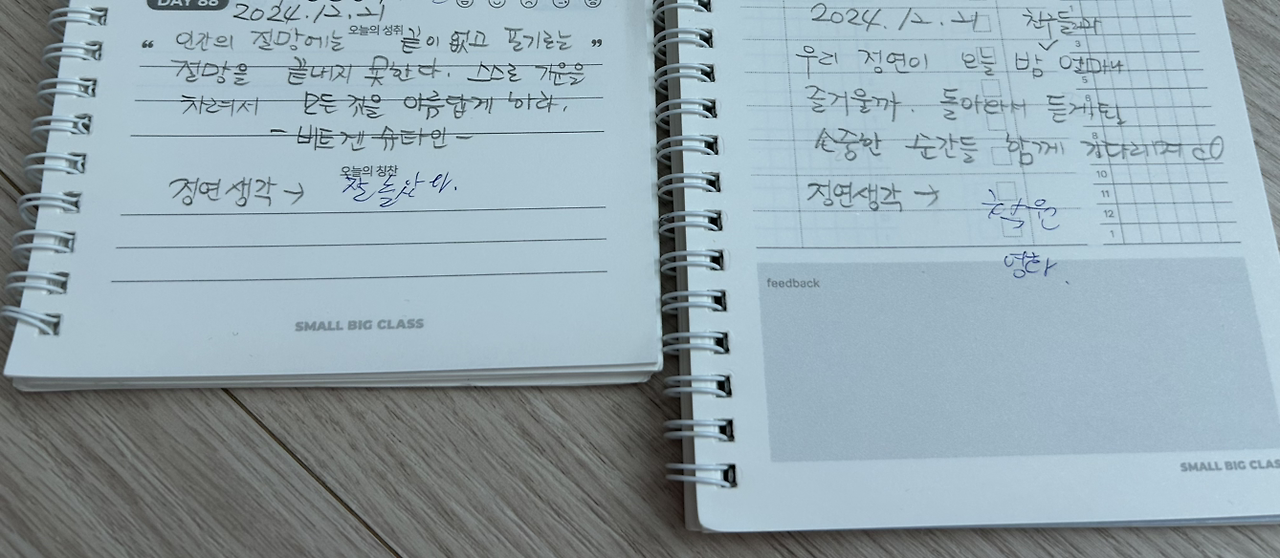 DAY 88
2024.12.21
오늘의 성취
“ 인간의 절망에는 끝이 없고 포기로는 ”
절망을 끝내지 못한다. 스스로 기운을
차려서 모든 것을 아름답게 하라.
- 비트겐슈타인 -
오늘의 칭찬
정연생각 → 잘 놀았다.
SMALL BIG CLASS
2024.12.21 친구들과
우리 정연이 오늘 밤 얼마나
즐거울까. 돌아와서 듣게 될
소중한 순간들 함께 기다리며
정연생각 →
10
11
12
1
feedback
SMALL BIG CLAS